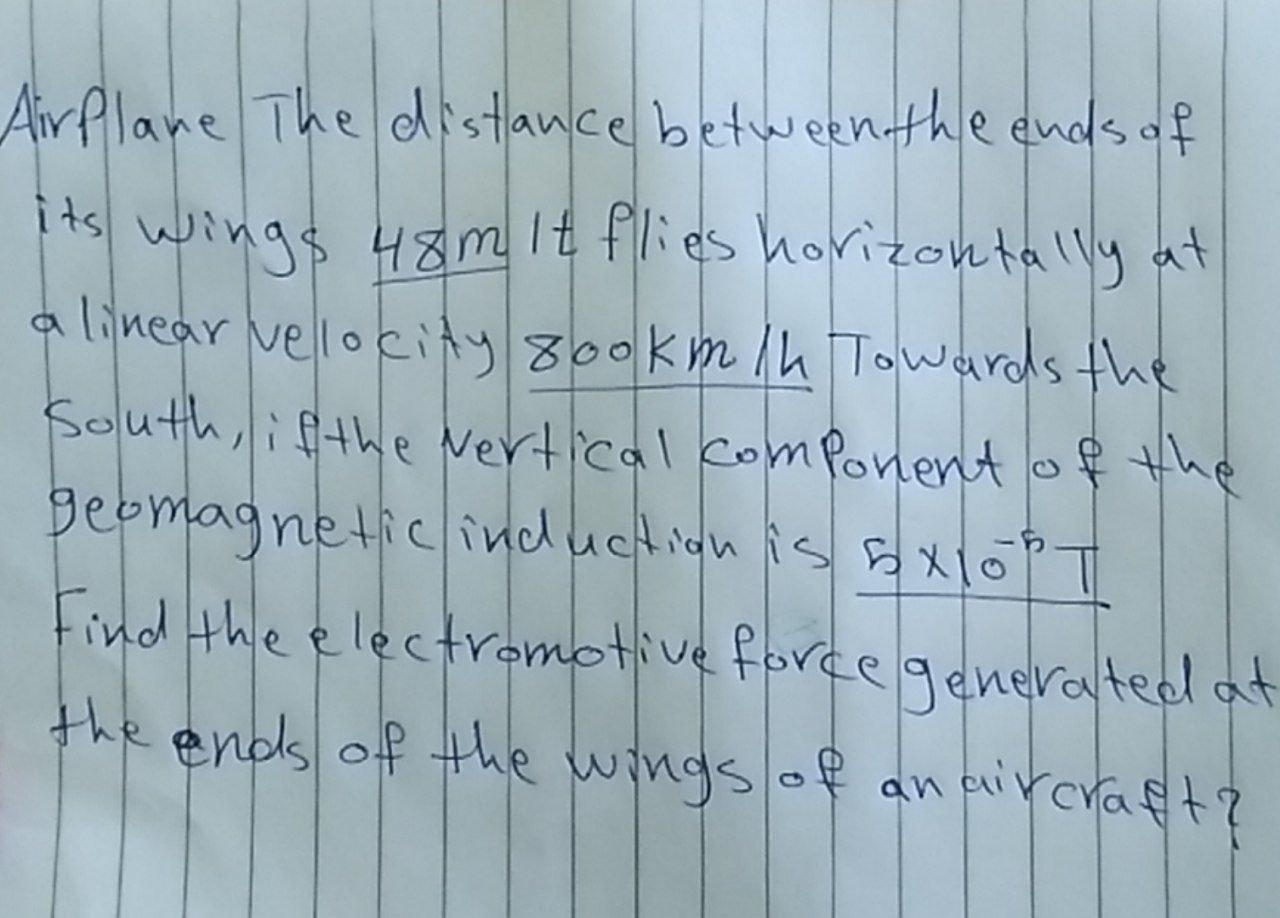 Airplane The distance between the ends of
its wings 48m It flies horizontally at
a linear velocity 800km/h Towards the
South, if the vertical component of the
geomagnetic induction is 5×10⁻⁵T
Find the electromotive force generated at
the ends of the wings of an aircraft?